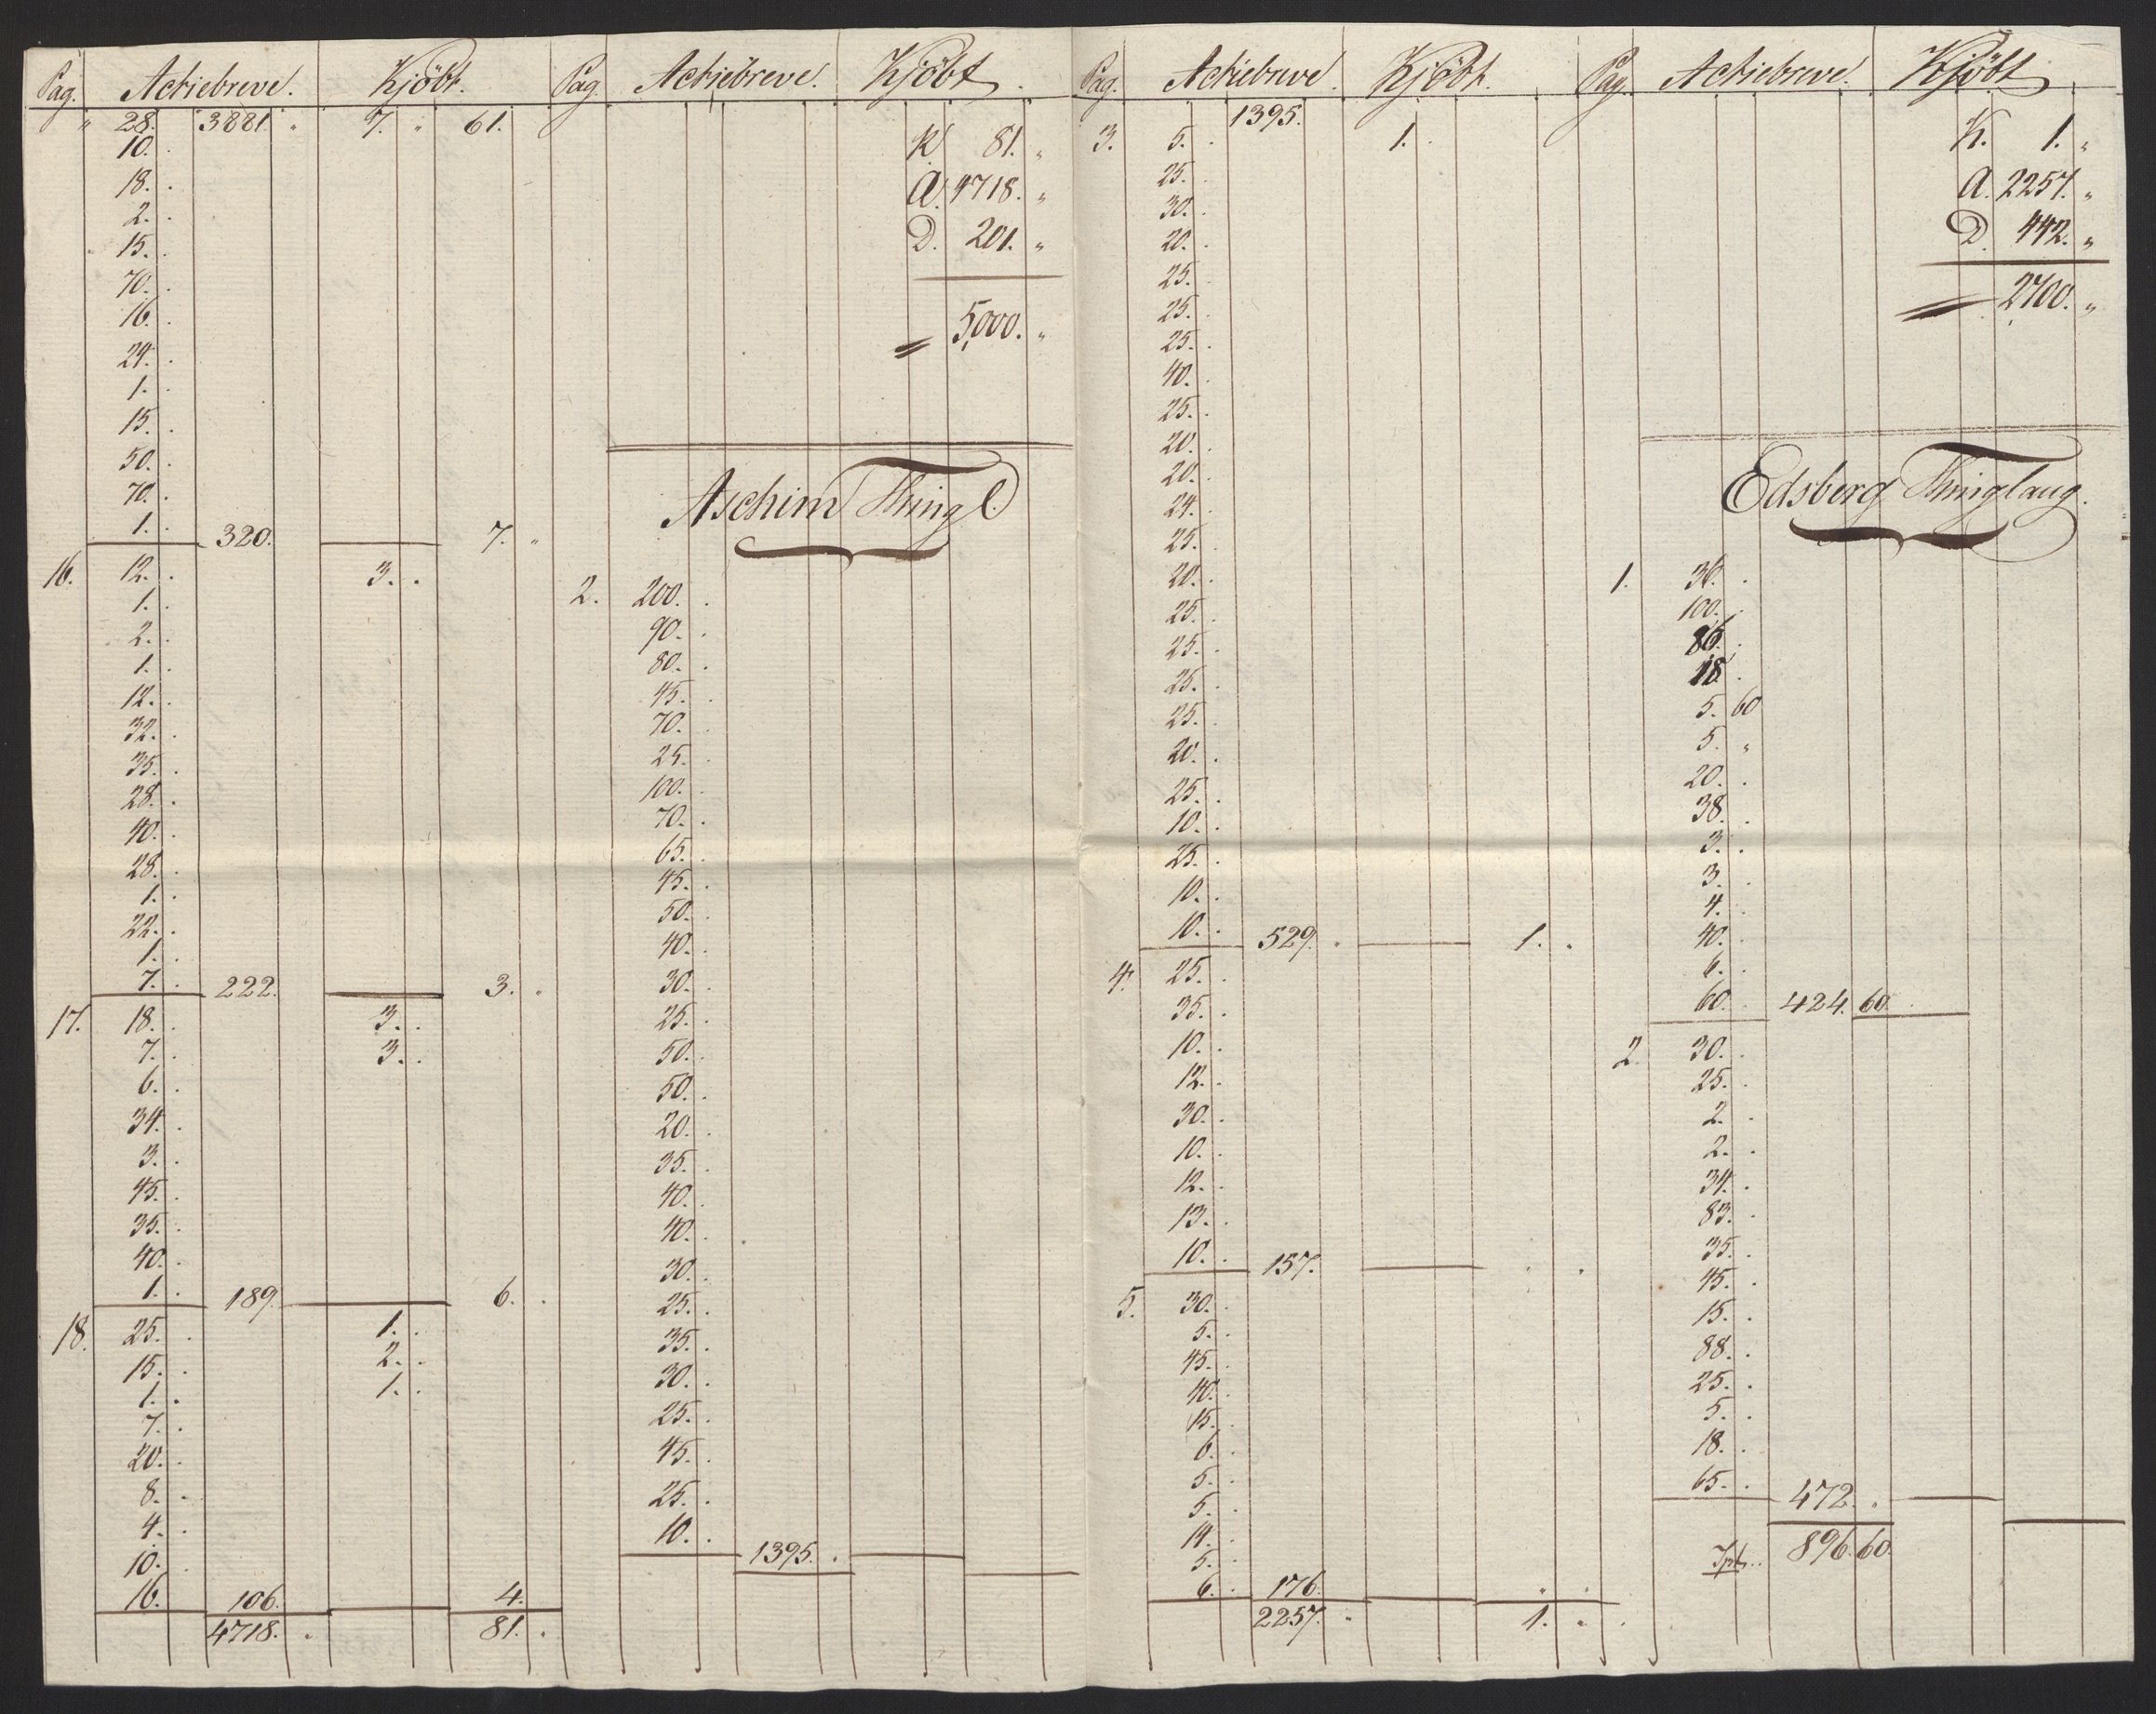 Pag. Actiebreve. Kjöbt.
" 28. 3881. " 7. " 61.
10.
18.
2.
15.
70.
16.
24.
1.
15.
50.
70.
1. 320. 7. "
16. 12. 3.
1.
2.
1.
12.
32.
35.
28.
40.
28.
1.
22.
1.
7. 222. 3.
17. 18. 3.
7. 3.
6.
34.
3.
45.
35.
40.
1. 189. 6.
18. 25. 1.
15. 2.
1. 1.
7.
20.
8.
4.
10.
16. 106. 4.
4718. 81.
Pag. Actiebreve. Kjöbt.
K. 81. "
A. 4718. "
D. 201. "
= 5,000. "
Aschim Thingl.
2. 200.
90.
80.
45.
70.
25.
100.
70.
65.
45.
50.
40.
30.
25.
50.
50.
20.
35.
40.
40.
30.
25.
35.
30.
25.
45.
25.
10. 1395.
Pag. Actiebreve. Kjöbt.
1395.
3. 5. 1.
25.
30.
20.
25.
25.
25.
40.
25.
20.
20.
24.
25.
20.
25.
25.
25.
25.
20.
25.
10.
25.
10.
10. 529. 1.
4. 25.
35.
10.
12.
30.
10.
12.
13.
10. 157.
5. 30.
5.
45.
40.
15.
6.
5.
5.
14.
5.
6. 176.
2257. 1.
Pag. Actiebreve. Kjöbt
K. 1. "
A. 2257. "
D. 442. "
= 2,700. "
Edsberg Thinglaug.
1. 36.
100.
86.
18.
5. 60
5. "
20.
38.
3.
3.
4.
40.
6.
60. 424. 60.
2. 30.
25.
2.
2.
34.
83.
35.
45.
15.
88.
25.
5.
18.
65. 472.
896. 60.